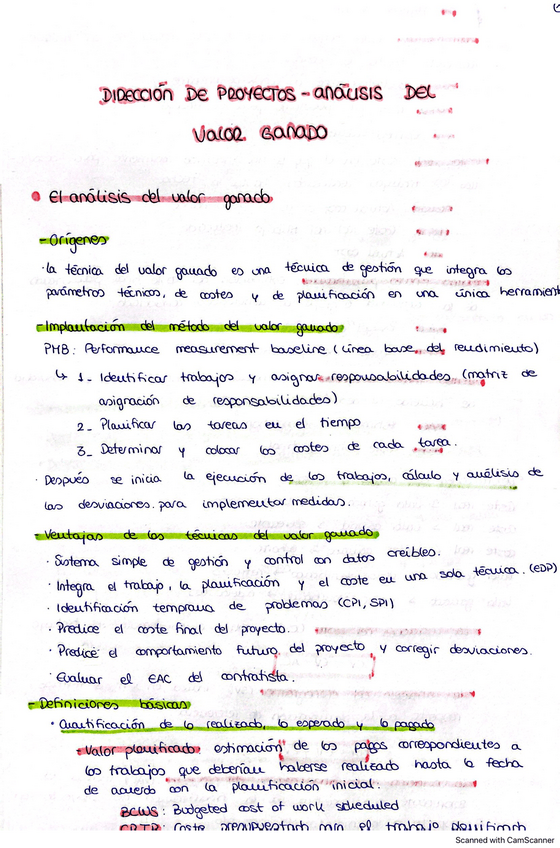 DIRECCIÓN DE PROYECTOS - ANÁLISIS DEL
VALOR GANADO
• El análisis del valor ganado
- Orígenes
· la técnica del valor ganado es una técnica de gestión que integra los
parámetros técnicos, de costes y de planificación en una única herramient
- Implantación del método del valor ganado
PMB: Performance measurement baseline (línea base del rendimiento)
↳ 1- Identificar trabajos y asignar responsabilidades (matriz de
asignación de responsabilidades)
2- Planificar las tareas en el tiempo
3- Determinar y colocar los costes de cada tarea.
· Después se inicia la ejecución de los trabajos, cálculo y análisis de
las desviaciones para implementar medidas.
- Ventajas de las técnicas del valor ganado
· Sistema simple de gestión y control con datos creibles.
· Integra el trabajo, la planificación y el coste en una sola técnica. (EDP)
· Identificación temprana de problemas (CPI, SPI)
· Predice el coste final del proyecto.
· Predice el comportamiento futuro del proyecto y corregir desviaciones.
· Evaluar el EAC del contratista.
- Definiciones básicas
· Cuantificación de lo realizado, lo esperado y lo pagado
- Valor planificado estimación de los pagos correspondientes a
los trabajos que deberían haberse realizado hasta la fecha
de acuerdo con la planificación inicial.
BCWS: Budgeted cost of work scheduled
CPTP: Coste presupuestado para el trabajo planificado
Scanned with CamScanner